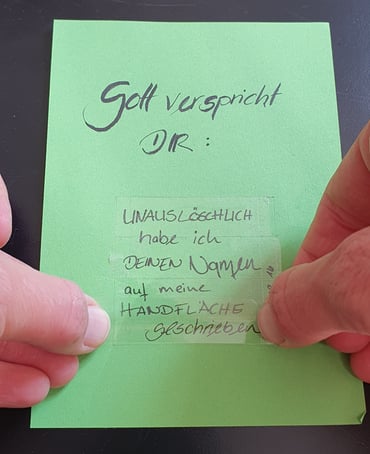 Gott verspricht
DIR:
UNAUSLÖSCHLICH
habe ich
DEINEN Namen
auf meine
HANDFLÄCHE
geschrieben